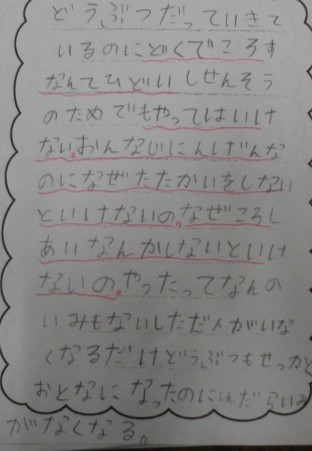 どうぶつだっていきて
いるのにどくでころす
なんてひどいしせんそう
のためでもやってはいけ
ない。おんなじにんげんな
のになぜたたかいをしない
といけないの。なぜころし
あいなんかしないといけ
ないの。やったってなんの
いみもないしただ人がいな
くなるだけどうぶつもせっかく
おとなになったのにしんだらいみ
がなくなる。